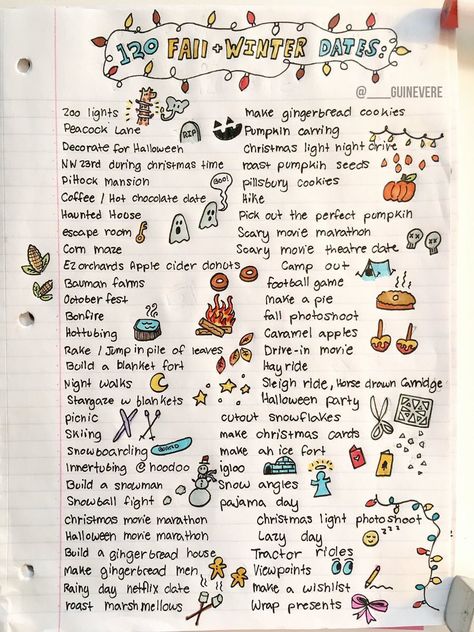 120 FALL + WINTER DATES:
@____GUINEVERE
zoo lights
Peacock Lane
Decorate for Halloween
NW 23rd during christmas time
Pittock mansion
Coffee / Hot chocolate date
Haunted House
escape room
Corn maze
EZ orchards Apple cider donuts
Bauman farms
October fest
Bonfire
Hottubing
Rake / Jump in pile of leaves
Build a blanket fort
Night walks
Stargaze w blankets
picnic
Skiing
Snowboarding
Innertubing @ hoodoo
Build a snowman
Snowball fight
christmas movie marathon
Halloween movie marathon
Build a gingerbread house
Make gingerbread men
Rainy day netflix date
roast marshmellows
RIP
BOO!
make gingerbread cookies
Pumpkin carving
Christmas light night drive
roast pumpkin seeds
pillsbury cookies
Hike
Pick out the perfect pumpkin
Scary movie marathon
Scary movie theatre date
Camp out
football game
make a pie
fall photoshoot
Caramel apples
Drive-in movie
Hay ride
Sleigh ride, Horse drawn Carridge
Halloween party
cutout snowflakes
make christmas cards
make an ice fort
igloo
Snow angles
pajama day
christmas light photoshoot
Lazy day
Tractor rides
Viewpoints
make a wishlist
Wrap presents